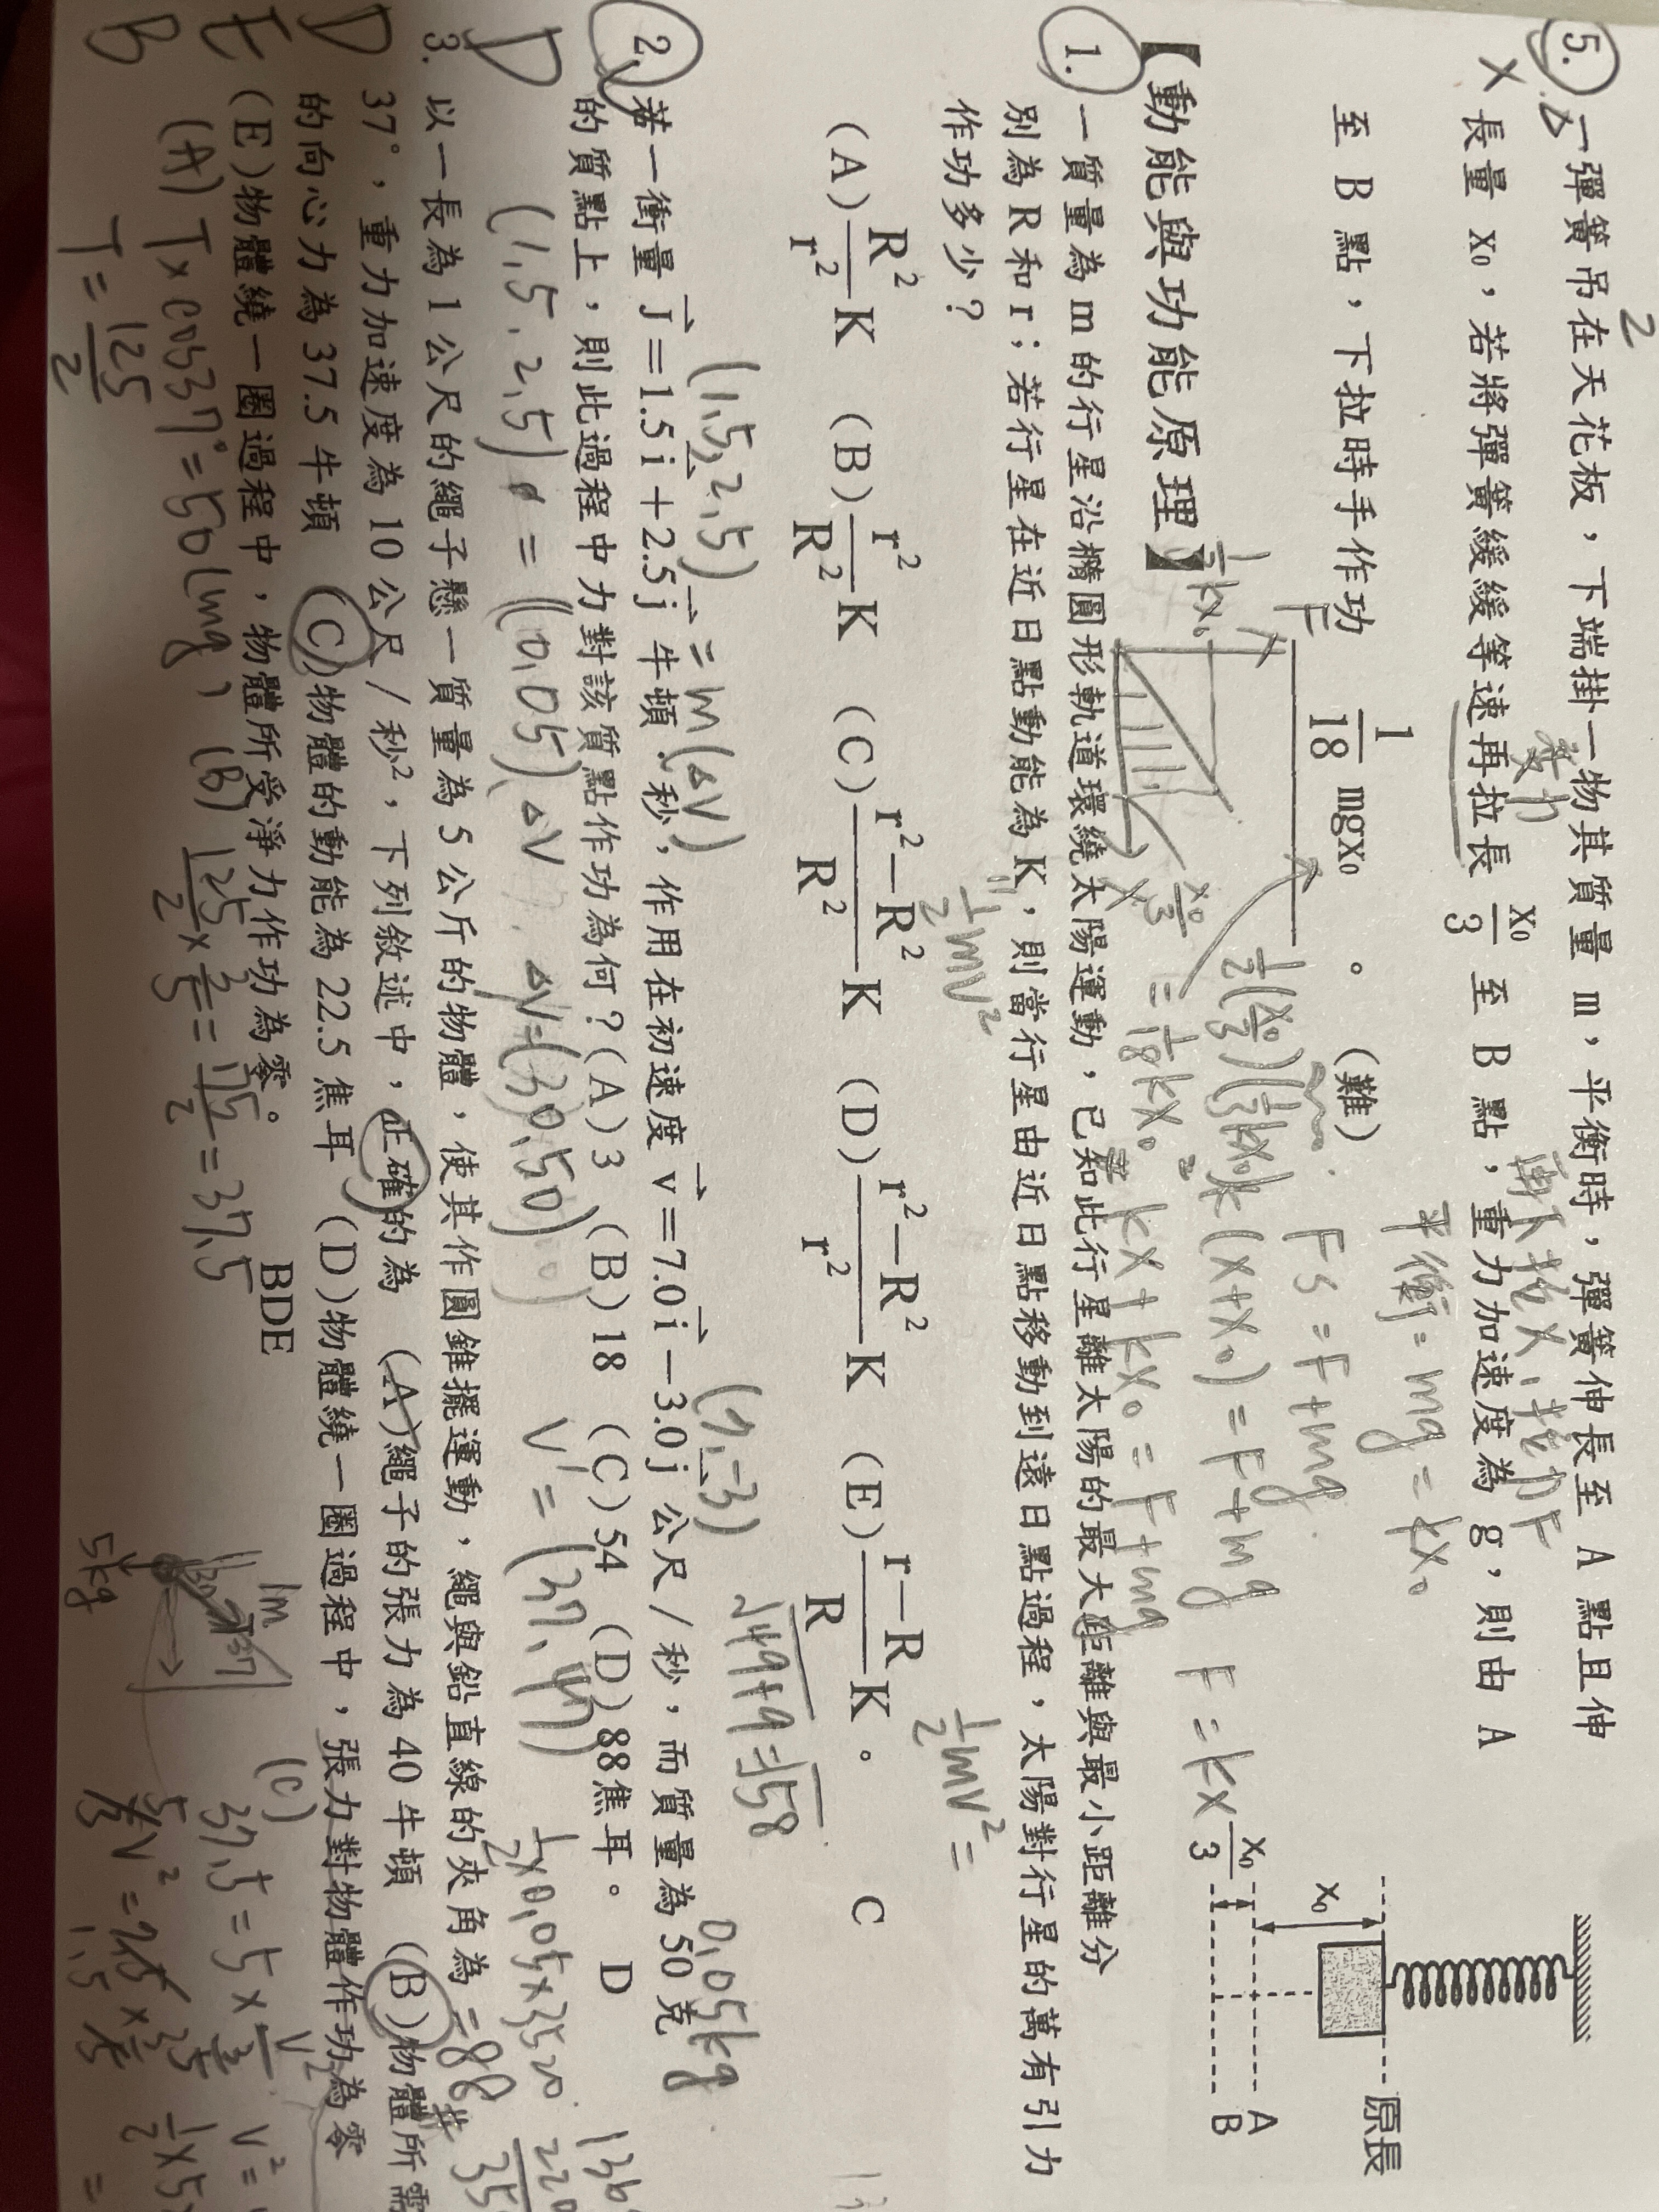 5. 一彈簧吊在天花板，下端掛一物其質量 m，平衡時，彈簧伸長至 A 點且伸
長量 x₀，若將彈簧緩緩等速再拉長 x₀/3 至 B 點，重力加速度為 g，則由 A
至 B 點，下拉時手作功 1/18 mgx₀ 。 (難)
原長
x₀
x₀/3
A
B
平衡=mg=kx₀
Fs=F+mg
k(x+x₀)=F+mg
kx+kx₀=F+mg
F=kx
F
x
=1/18 kx₀²
【動能與功能原理】
1. 一質量為 m 的行星沿橢圓形軌道環繞太陽運動，已知此行星離太陽的最大距離與最小距離分
別為 R 和 r；若行星在近日點動能為 K，則當行星由近日點移動到遠日點過程，太陽對行星的萬有引力
作功多少？
1/2 mv²
1/2 mv²=
(A) R²/r² K (B) r²/R² K (C) r²—R²/R² K (D) r²—R²/r² K (E) r—R/R K 。 C
(1.5, 2.5) = m(ΔV)
(7, -3)
√49+9=√58
0.05kg
2. 若一衝量 J⃗＝1.5i⃗＋2.5j⃗ 牛頓‧秒，作用在初速度 v⃗＝7.0i⃗—3.0j⃗ 公尺／秒，而質量為 50 克
的質點上，則此過程中力對該質點作功為何？(A)3 (B)18 (C)54 (D)88焦耳。 D
D
(1.5, 2.5) = (0.05) ΔV
ΔV=(30, 50)
V'= (37, 47)
1/2×0.05×3520
=88
3. 以一長為 1 公尺的繩子懸一質量為 5 公斤的物體，使其作圓錐擺運動，繩與鉛直線的夾角為
37°，重力加速度為 10 公尺／秒²，下列敘述中，正確的為 (A)繩子的張力為 40 牛頓 (B)物體所需
的向心力為 37.5 牛頓 (C)物體的動能為 22.5 焦耳 (D)物體繞一圈過程中，張力對物體作功為零
(E)物體繞一圈過程中，物體所受淨力作功為零。 BDE
D
E
B
(A) T×cos37°=50(mg)
T=125/2
(B) 125/2×3/5=75/2=37.5
1m
37
5kg
(C)